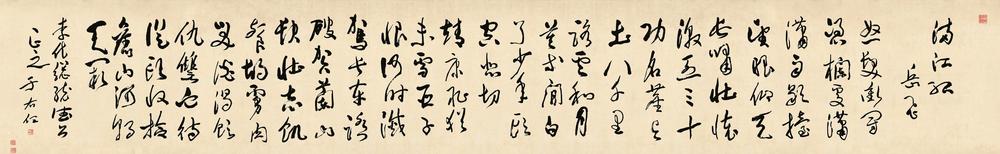 滿江紅
岳飛
怒髮衝冠
憑欄處瀟
瀟雨歇擡
望眼仰天
長嘯壯懷
激烈三十
功名塵與
土八千里
路雲和月
莫等閒白
了少年頭
空悲切
靖康恥猶
未雪臣子
恨何時滅
駕長車踏
破賀蘭山
缺壯志飢
餐胡虜肉
笑談渴飲
仇讎血待
從頭收拾
舊山河朝
天闕
李代總統德公
正之 于右任